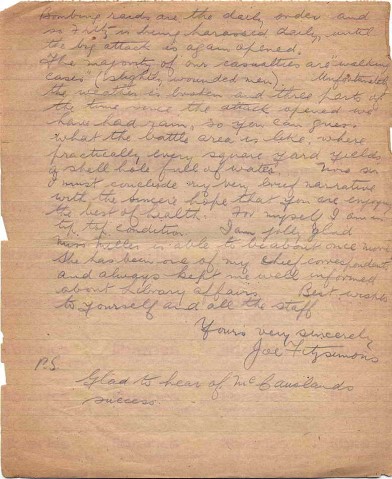 Bombing raids are the daily order and
so Fritz is being harassed daily, until
the big attack is again opened.
The majority of our casualties are "walking
cases" (slightly wounded men). Unfortunately
the weather is broken and three parts of
the time since the attack opened we
have had rain, so you can guess
what the battle area is like, where
practically every square yard yields
a shell hole full of water. Now sir
I must conclude my very brief narrative
with the sincere hope that you are enjoying
the best of health. For myself I am in
tip top condition. I am jolly glad
Miss Miller is able to be about once more
She has been one of my chief correspondents
and always kept me well informed
about Library affairs. Best wishes
to yourself and all the staff
Yours very sincerely
Joe Fitzsimons
P.S
Glad to hear of McCauslands
success.